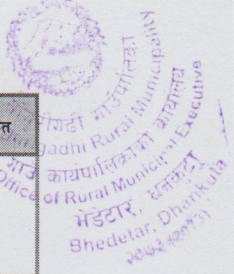 त
गाउँपालिका
gadhi Rural Municipality
गाउँ कार्यपालिकाको कार्यालय
Office of Rural Municipal Executive
भेडेटार, धनकुटा
Bhedetar, Dhankuta